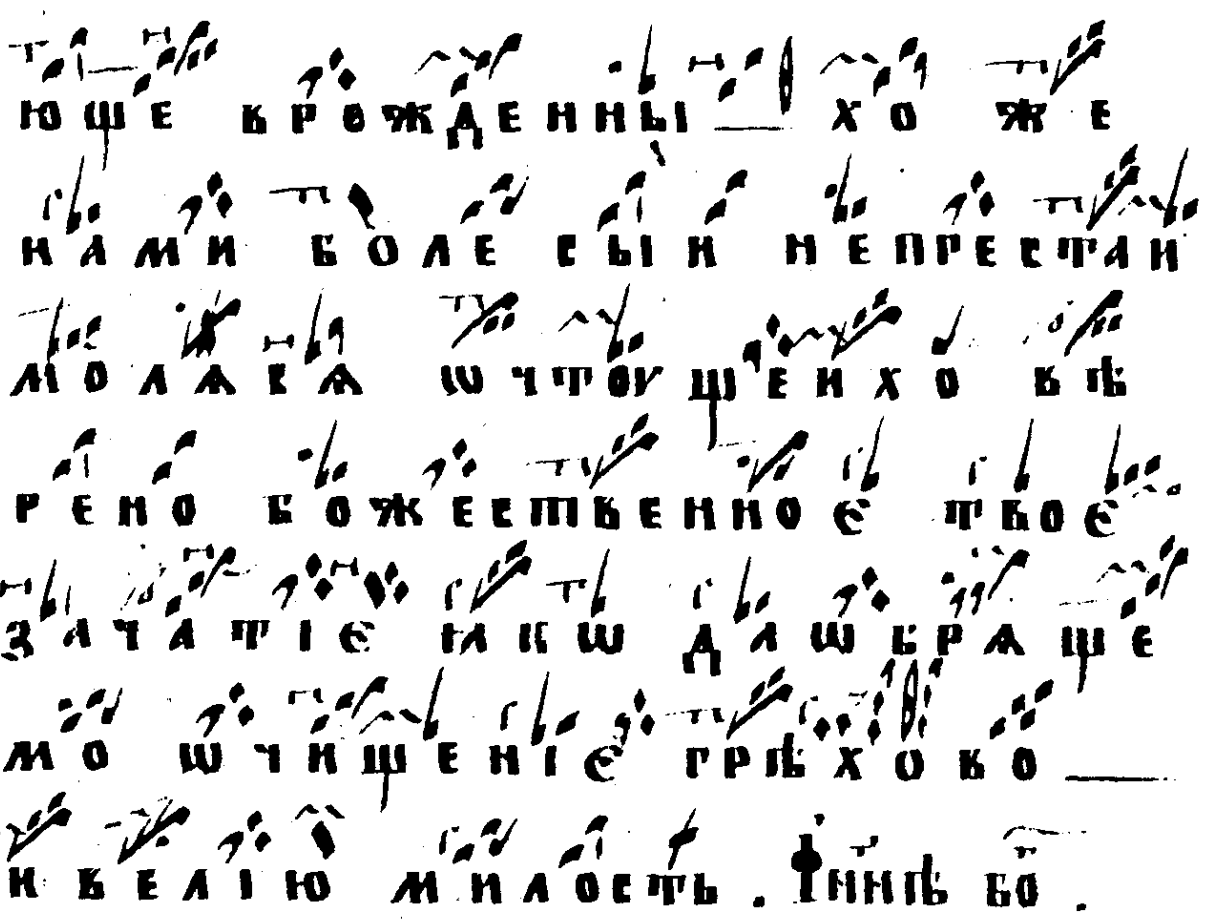 юще врѳжденны хо же
нами боле сый непрестай
молѧсѧ ѡчтоущенхо вѣ
рено божественноє твоє
зачатіє ꙗкѡ даѡбрѧще
мо ѡчищеніє грѣхово
и велію милость . Іннѣ бо .